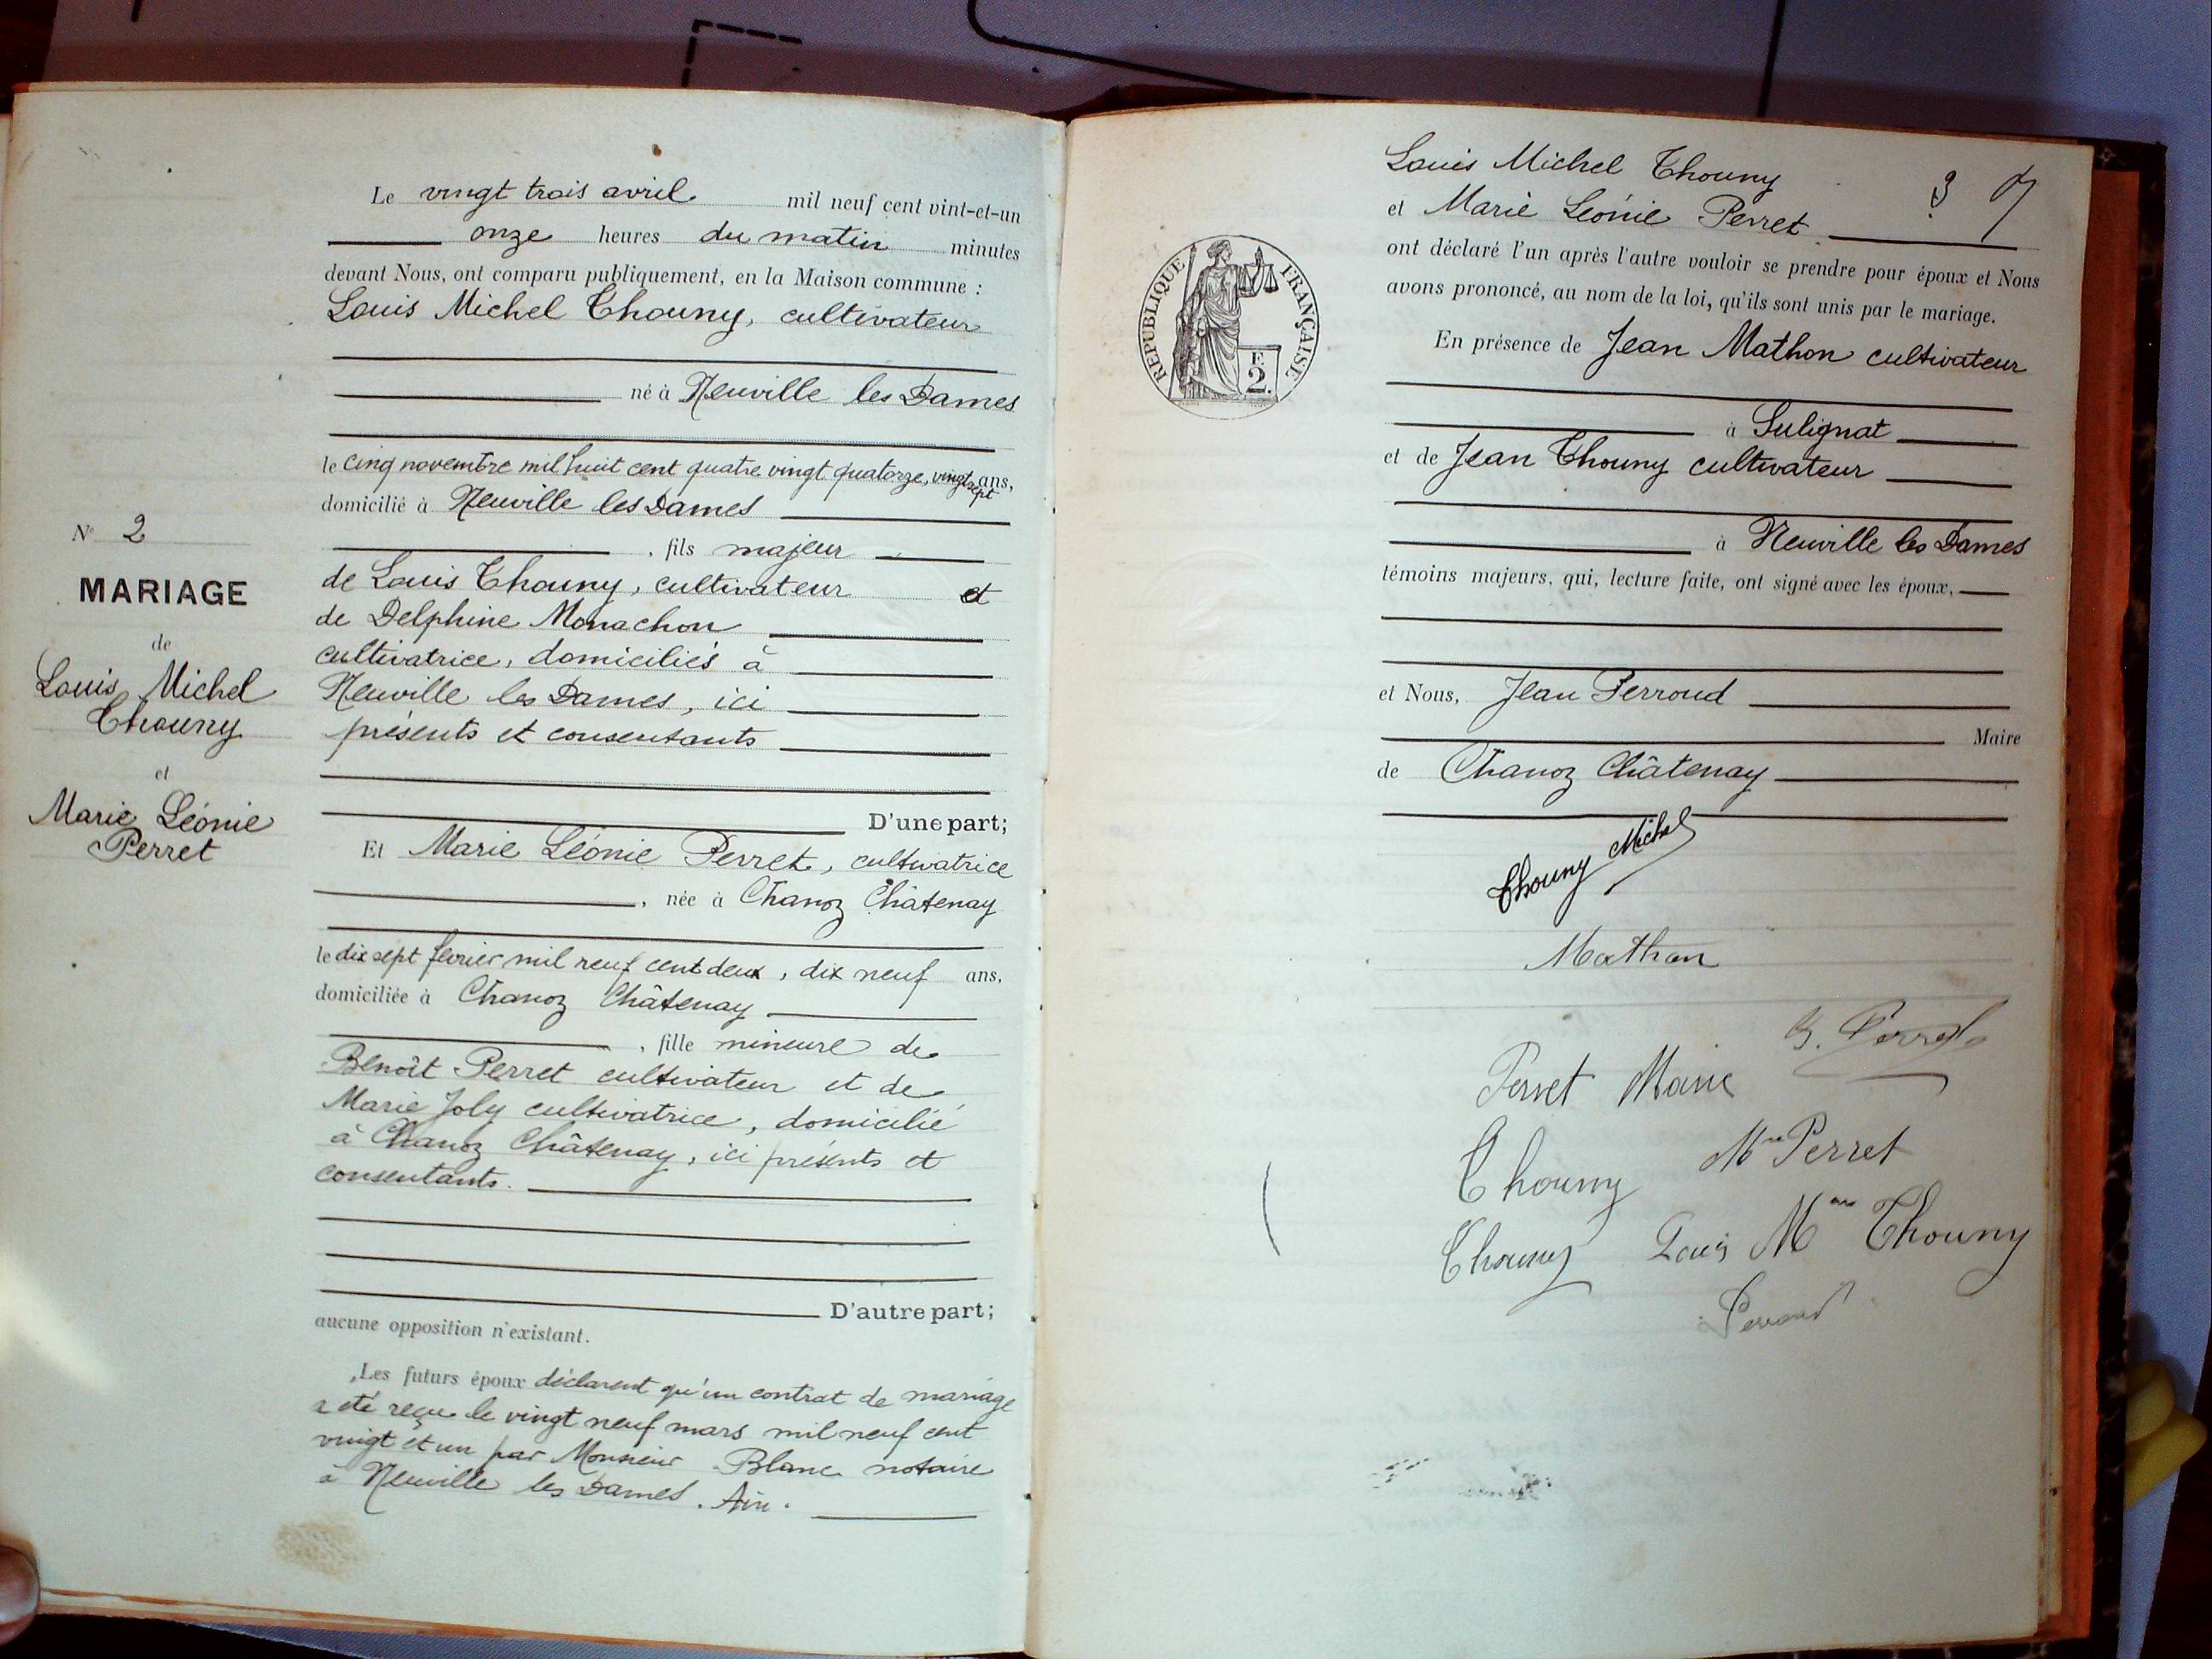 Le vingt trois avril mil neuf cent vint-et-un
onze heures du matin minutes
devant Nous, ont comparu publiquement, en la Maison commune :
Louis Michel Thouny, cultivateur
né à Neuville les Dames
le cinq novembre mil huit cent quatre vingt quatorze, vingt sept ans,
domicilié à Neuville les Dames
, fils majeur
de Louis Thouny, cultivateur et
de Delphine Monachon
cultivatrice, domiciliés à
Neuville les Dames, ici
présents et consentants
D'une part;
Et Marie Léonie Perret, cultivatrice
, née à Chanoz Châtenay
le dix sept fevrier mil neuf cent deux, dix neuf ans,
domiciliée à Chanoz Châtenay
, fille mineure de
Benoît Perret cultivateur et de
Marie Joly cultivatrice, domicilié
à Chanoz Châtenay, ici présents et
consentants.
D'autre part;
aucune opposition n'existant.
Les futurs époux déclarent qu'un contrat de mariage
a été reçu le vingt neuf mars mil neuf cent
vingt et un par Monsieur Blanc notaire
à Neuville les Dames. Ain.
N° 2
MARIAGE
de
Louis Michel
Thouny
et
Marie Léonie
Perret
Louis Michel Thouny
et Marie Léonie Perret
3
ont déclaré l'un après l'autre vouloir se prendre pour époux et Nous
avons prononcé, au nom de la loi, qu'ils sont unis par le mariage.
RÉPUBLIQUE FRANÇAISE
F.
2.
En présence de Jean Mathon cultivateur
à Sulignat
et de Jean Thouny cultivateur
à Neuville les Dames
témoins majeurs, qui, lecture faite, ont signé avec les époux,
et Nous, Jean Perroud
Maire
de Chanoz Châtenay
Thouny Michel
Mathon
B. Perret
Perret Marie
Mme Perret
Thouny
Thouny Louis Mme Thouny
Perroud